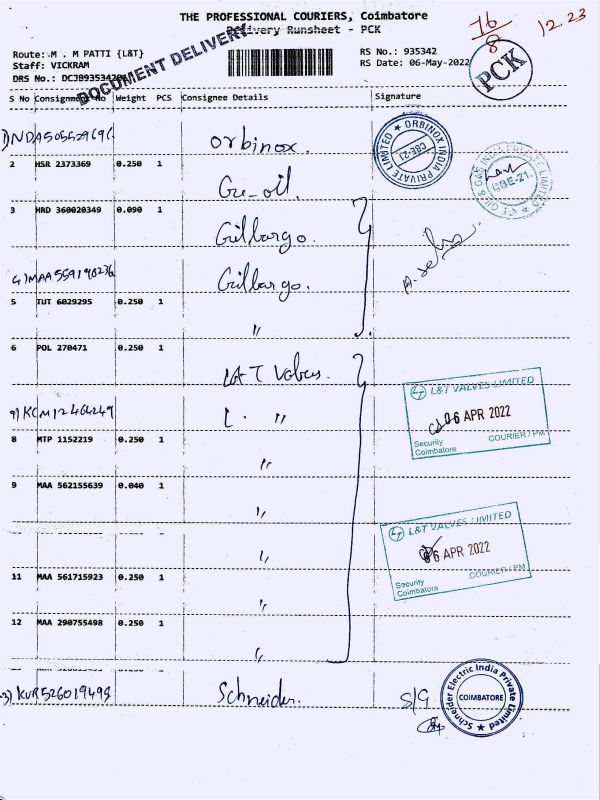 THE PROFESSIONAL COURIERS, Coimbatore
Delivery Runsheet - PCK
76/8
12.23
Route: M . M PATTI {L&T}
RS No.: 935342
Staff: VICKRAM
RS Date: 06-May-2022
DRS No.: DCJB93534220
DOCUMENT DELIVERY
PCK
S No Consignment No Weight PCS Consignee Details Signature
1) NDA505529696 Orbinox.
ORBINOX INDIA PRIVATE LIMITED
CBE-21
2 HSR 2373369 0.250 1
Gv-oil.
CBE-21.
3 HRD 360020349 0.090 1
Gilbargo.
4) MAA559190236 Gilbargo.
5 TUT 6029295 0.250 1
"
6 POL 270471 0.250 1
L&T Valves.
L&T VALVES LIMITED
06 APR 2022
Security
Coimbatore
COURIER / PM
KCM12464249 L . "
8 MTP 1152219 0.250 1
"
9 MAA 562155639 0.040 1
"
L&T VALVES LIMITED
06 APR 2022
Security
Coimbatore
COURIER / PM
"
11 MAA 561715923 0.250 1
"
12 MAA 290755498 0.250 1
"
KUR526019498 Schneider.
S/G
Schneider Electric India Private Limited
COIMBATORE